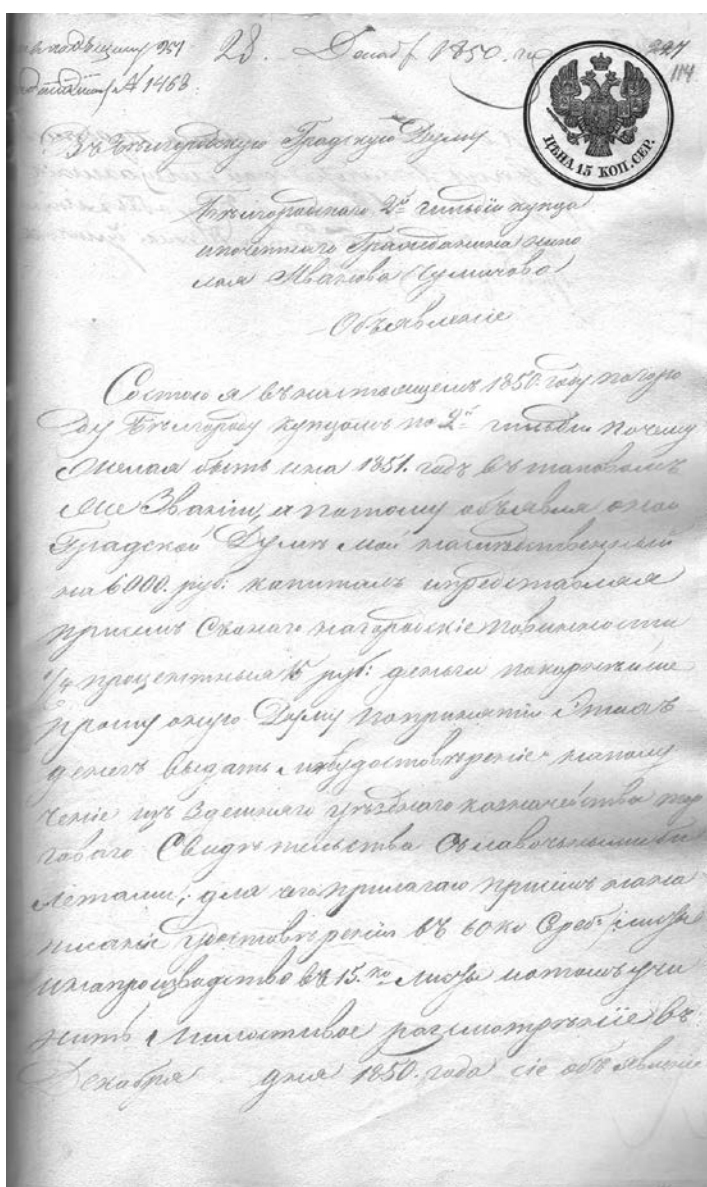 28. Декабр 1850. го
227
114
№ 1463
ЦѢНА 15 КОП. СЕР.
Въ Бѣлгородскую Градскую Думу
Бѣлгородскаго 2й гильдіи купца
и почетнаго Гражданина Нико
лая Иванова Чумичова
Объявленіе
Состою я въ настоящемъ 1850. году по горо
ду Бѣлгороду купцомъ по 2й гильдіи почему
желая быть и на 1851. годъ въ таковомъ
же Званіи, а потому объявля оной
Градской Думѣ мой наслѣдственный
на 6000. руб: капиталъ и представляя
присемъ Сконаго нагородскіе повинности
1/4 процентныя 15 руб: деньги покорнѣйше
прошу оную Думу по принятіи Этихъ
денегъ выдать мнѣ удостовѣреніе на полу
ченіе изъ Здешняго уѣзднаго казначейства тор
говаго Свидѣтельства Съ лавочными би
летами, для чего прилагаю присемъ на на
писаніе удостовѣренія въ 60 ко Сереб: листъ
и на производство въ 15. ко листъ и отомъ учи
нить Милостивое разсмотрѣніе въ
Декабря дня 1850. года сіе объявленіе